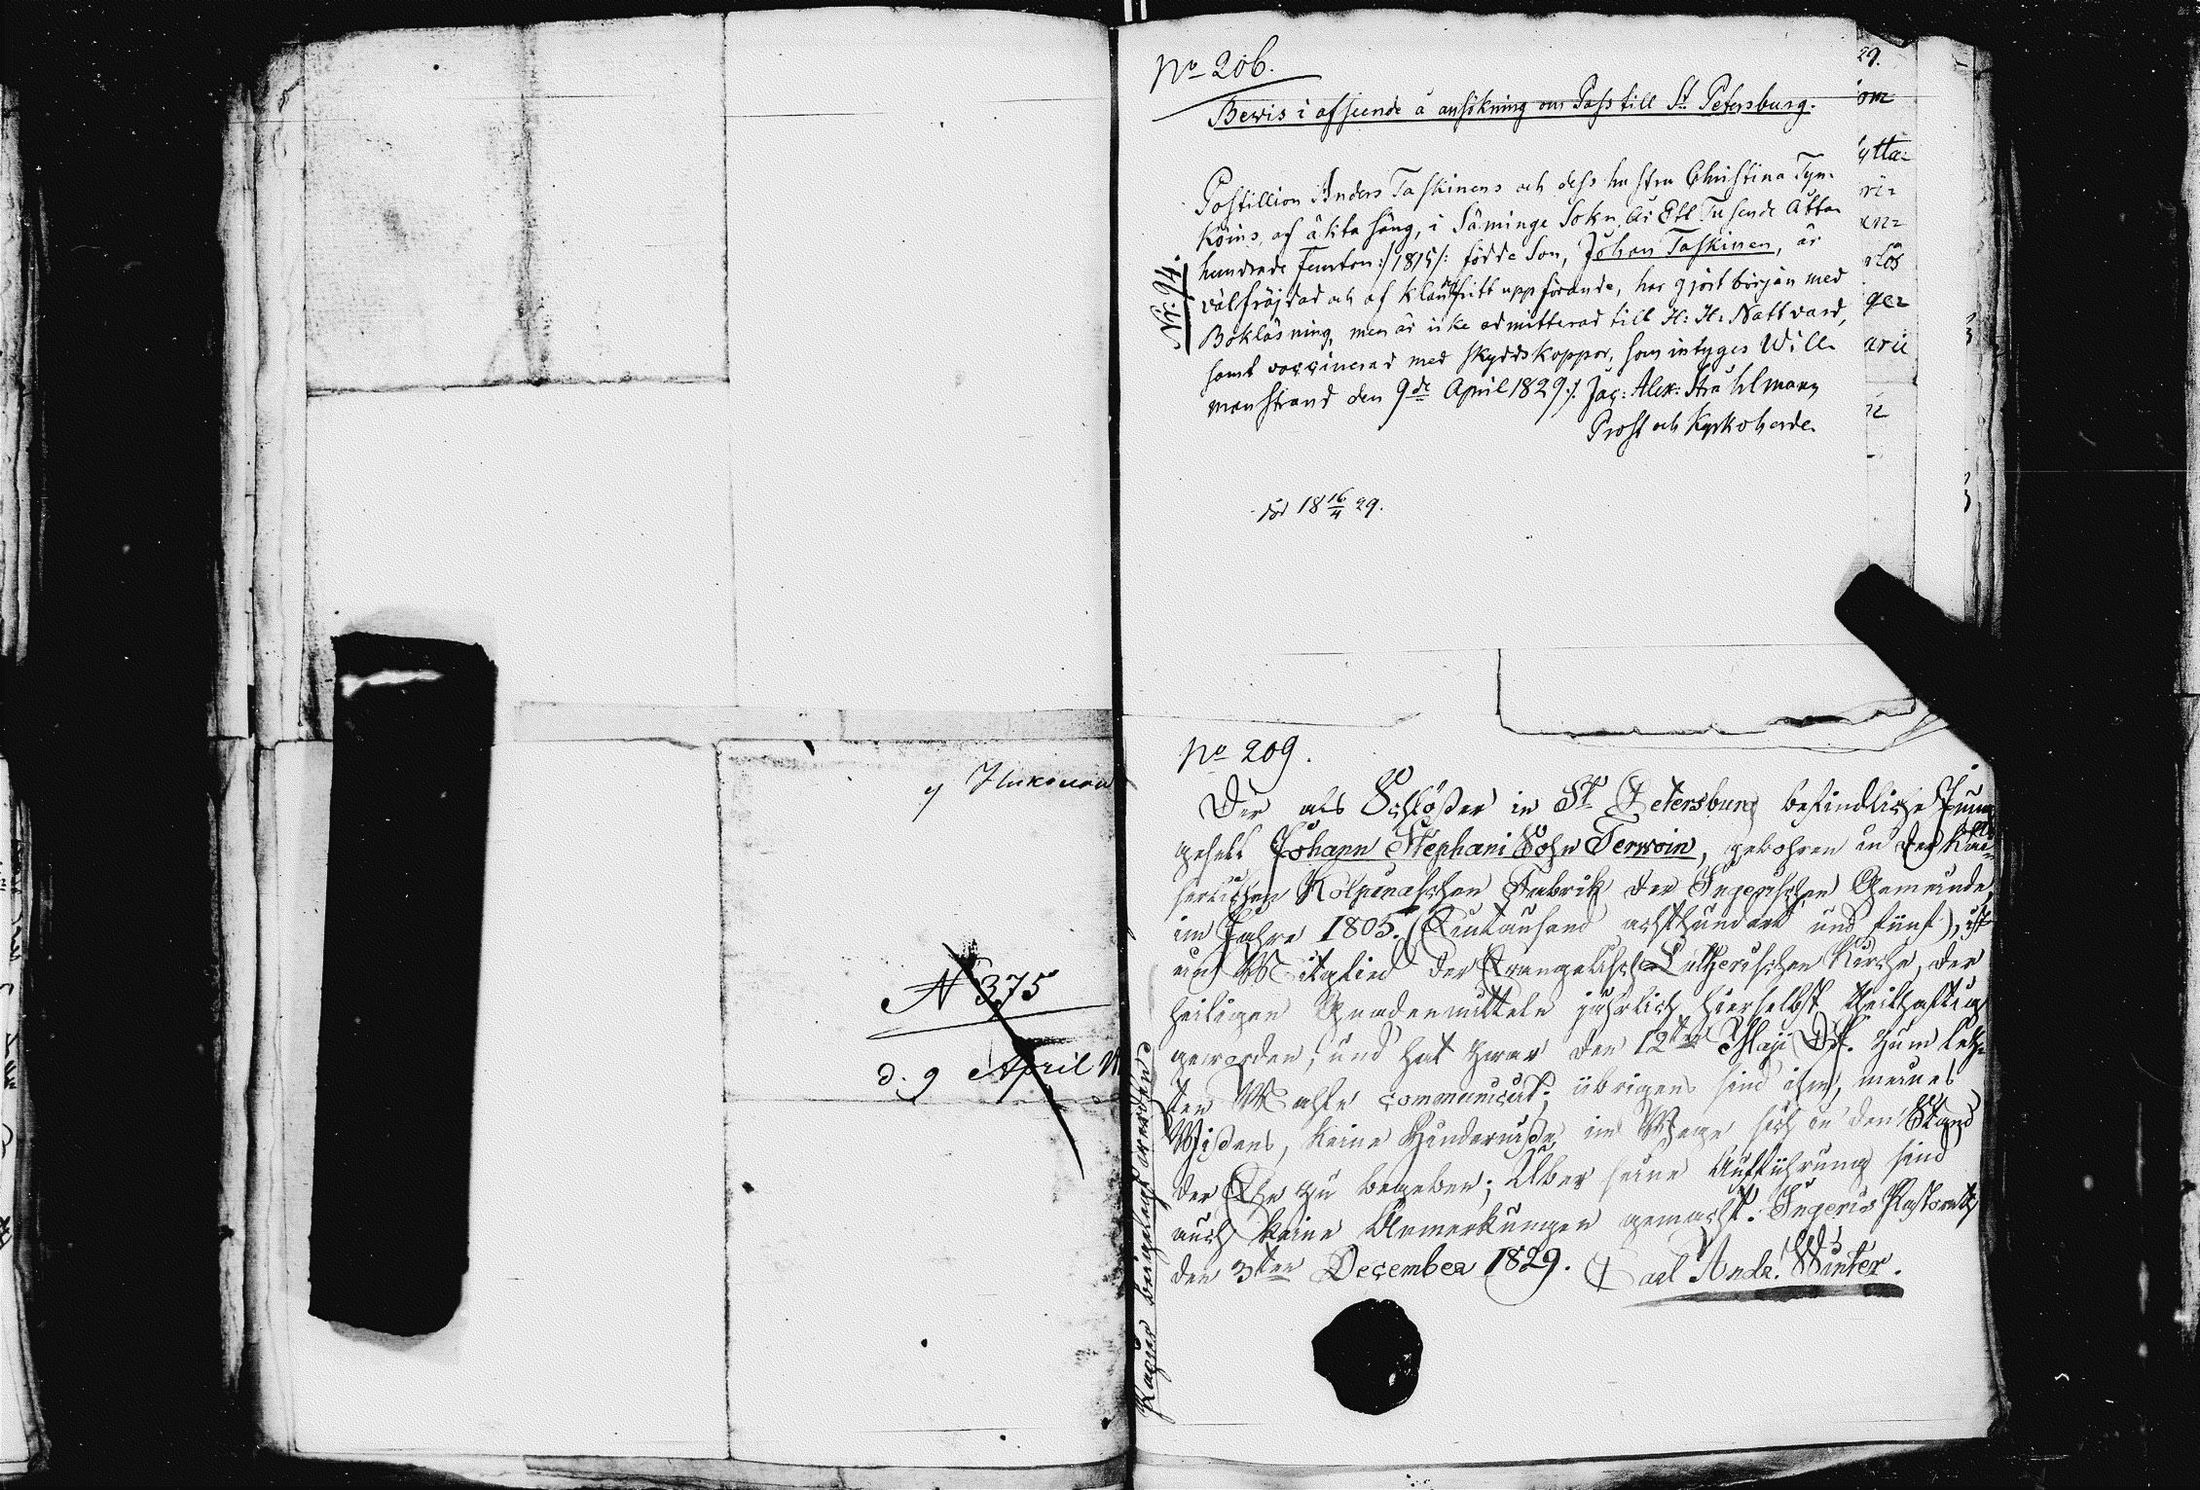 No 206.
Bewis i afseende å ansökning om Pass till St Petersburg.
Postillion Anders Taskinens och dess hustru Christina Tyn-
köins, af äkta säng, i Säminge Sokn År Ett Tusende Atta
hundrade Femton :/1815/: födde Son, Johan Taskinen, är
välfräjdad och af klanderfritt uppförande, har gjort början med
Bokläsning, men är icke admitterad till H: H: Nattvard,
samt vaccinerad med skyddskoppor, som intyges Will-
manstrand den 9de April 1829. Jac: Alex: Stråhlmann
Prost och Kyrkoherde
Nr: 94.
18 16/4 29.
29.
om
ytta-
ri-
en-
lös
ge-
arie
No 209.
Der als Schlößer in St Petersburg befindliche Jung
gesell Johann Stephani Sohn Terwoin, gebohren in der Kai-
serlichen Kolpinaschen Fabrik der Ingerischen Gemeinde,
im Jahre 1805. (Eintausend achthundert und fünf), ist
ein Mitglied der Evangelisch-Lutherischen Kirche, der
heiligen Gnadenmitteln jährlich hierselbst theilhaftig
geworden, und hat zwar den 12ten Maji zum letz-
ten Mahle communicirt; übrigens sind ihm, meines
Wißens, keine Hinderniße im Wege sich in den Stand
der Ehe zu begeben; Über seine Aufführung sind
auch keine Anmerkungen gemacht. Ingeris Pastorath
den 3ten December 1829. Carl Andr. Winter.
beigelegt worden
N 375
d. 9 April